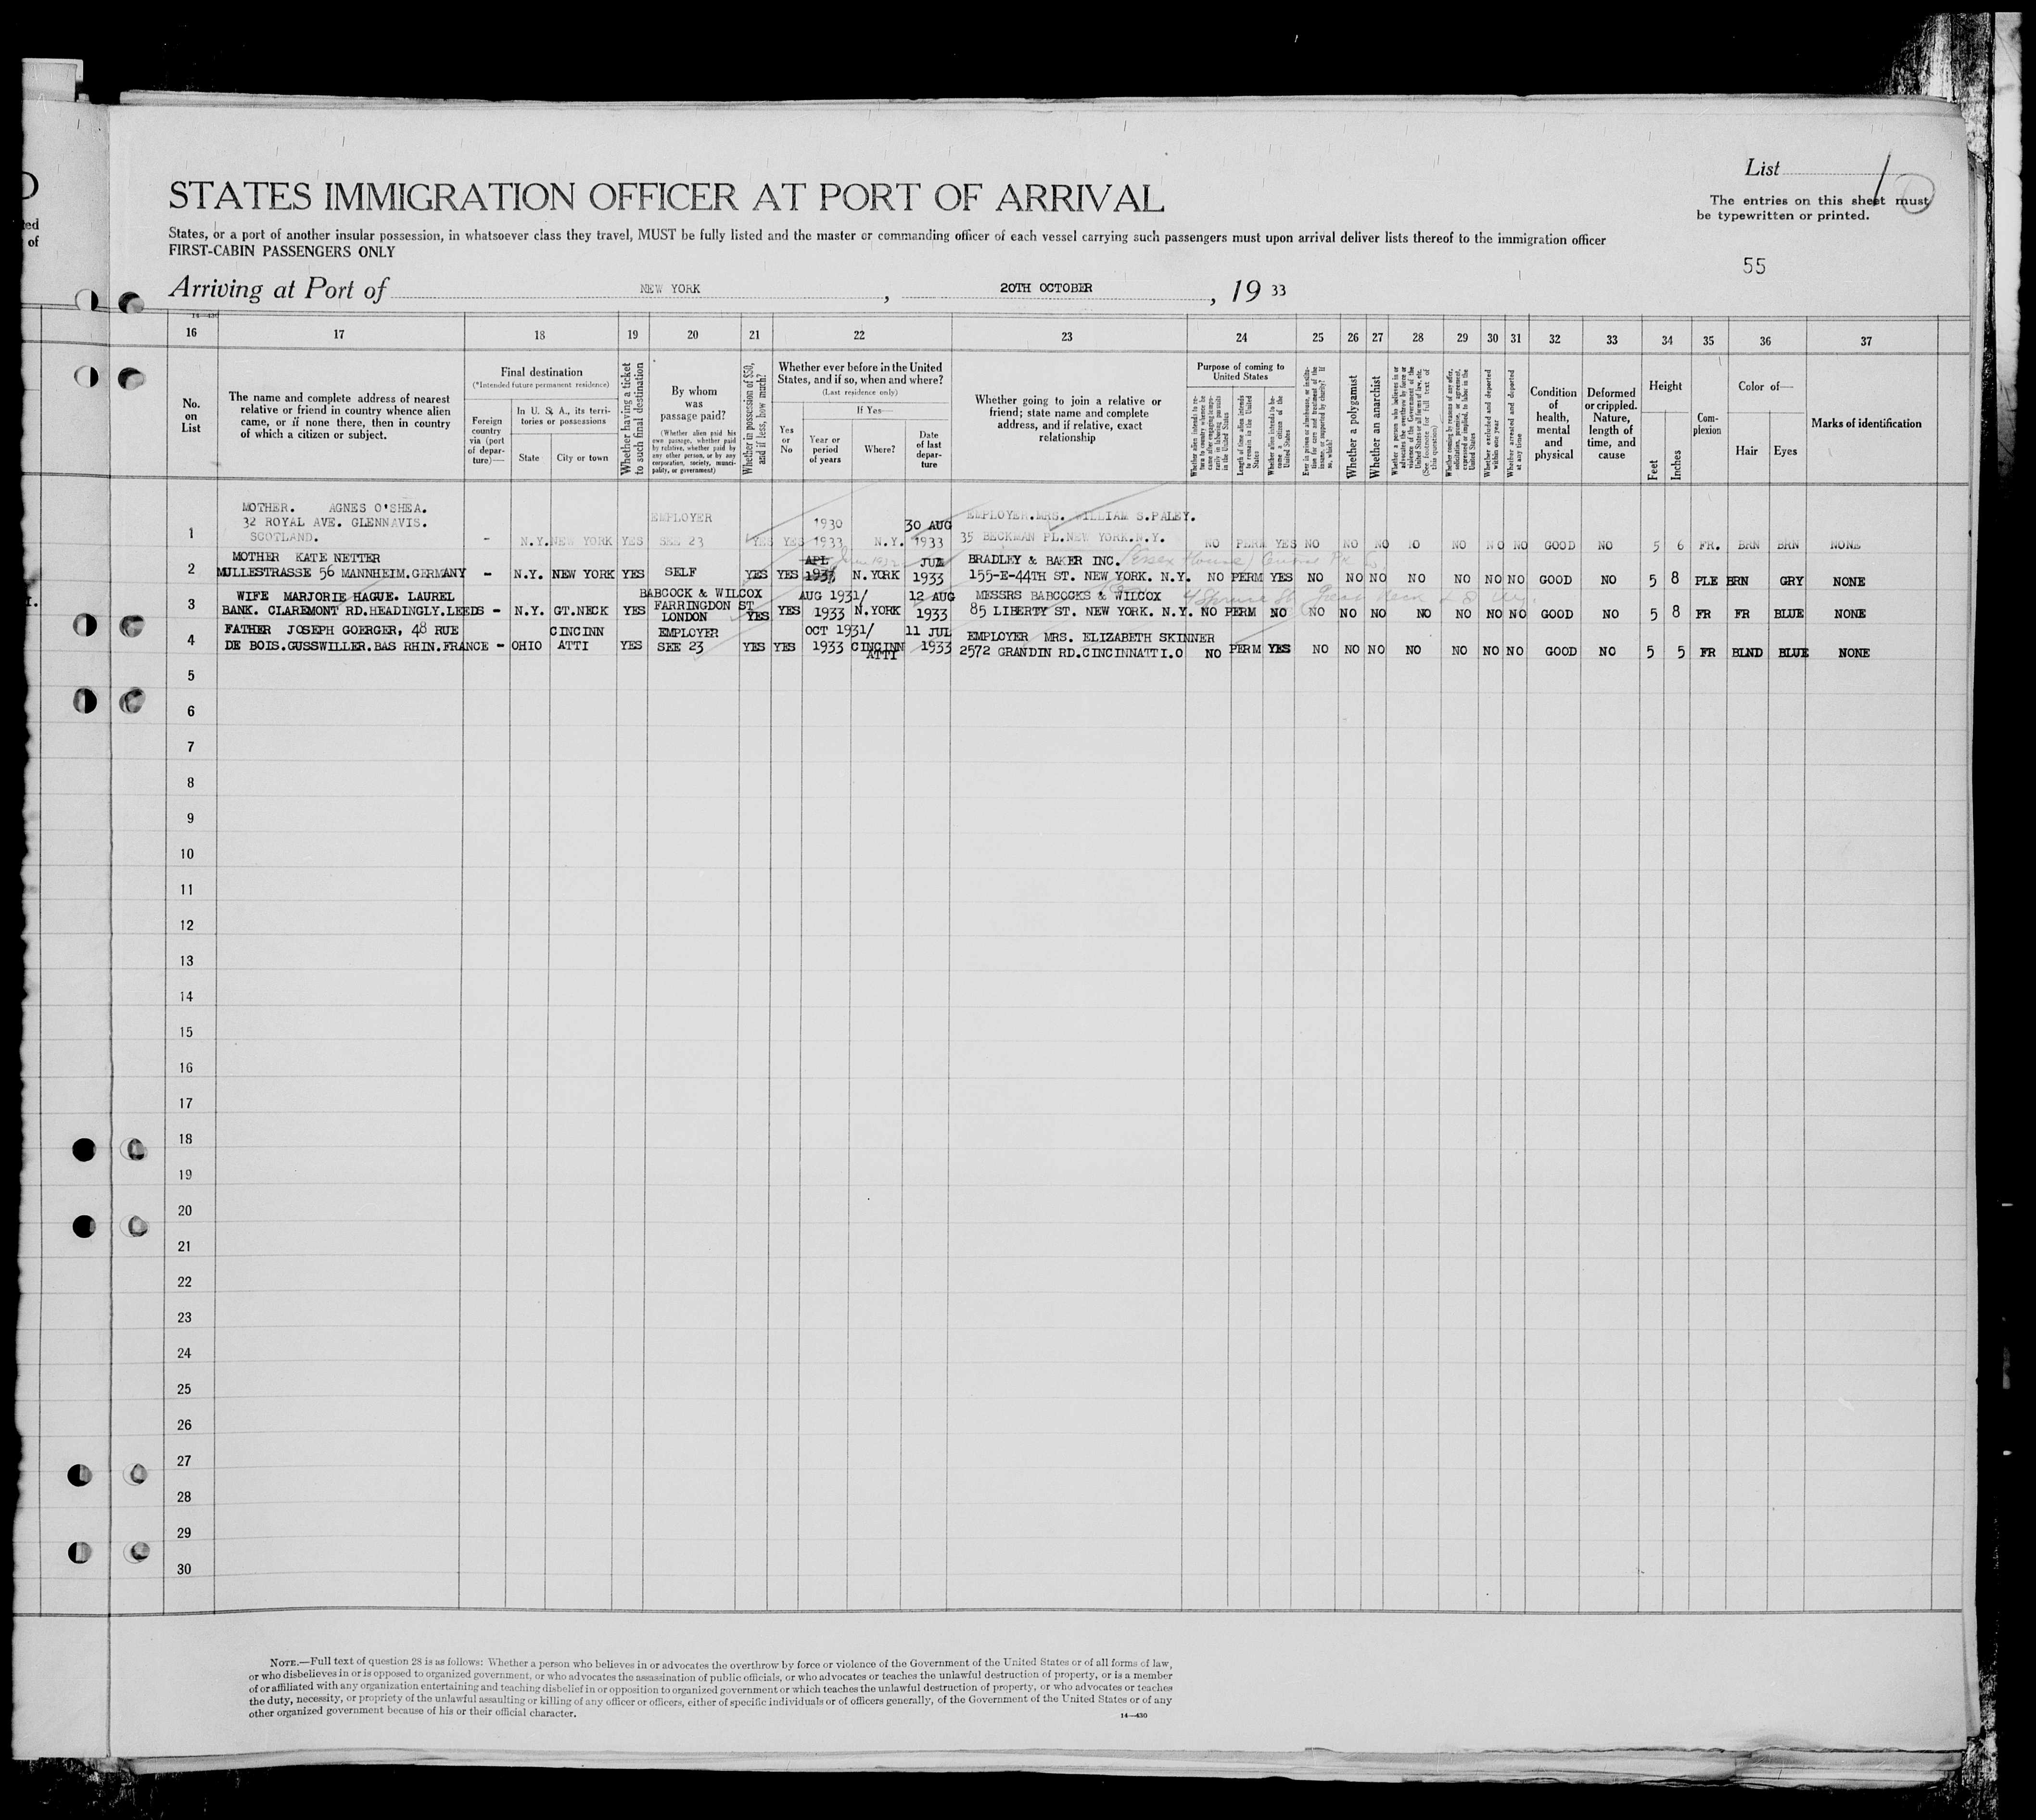 D
ted
of
I.
List 1
The entries on this sheet must
be typewritten or printed.
55
STATES IMMIGRATION OFFICER AT PORT OF ARRIVAL
States, or a port of another insular possession, in whatsoever class they travel, MUST be fully listed and the master or commanding officer of each vessel carrying such passengers must upon arrival deliver lists thereof to the immigration officer
FIRST-CABIN PASSENGERS ONLY
Arriving at Port of NEW YORK, 20TH OCTOBER, 19 33
14-430
16 17 18 19 20 21 22 23 24 25 26 27 28 29 30 31 32 33 34 35 36 37
No.
on
List
The name and complete address of nearest
relative or friend in country whence alien
came, or if none there, then in country
of which a citizen or subject.
Final destination
(*Intended future permanent residence)
Foreign
country
via (port
of depar-
ture)—
In U. S. A., its terri-
tories or possessions
State
City or town
Whether having a ticket
to such final destination
By whom
was
passage paid?
(Whether alien paid his
own passage, whether paid
by relative, whether paid by
any other person, or by any
corporation, society, munici-
pality, or government)
Whether in possession of $50,
and if less, how much?
Whether ever before in the United
States, and if so, when and where?
(Last residence only)
Yes
or
No
If Yes—
Year or
period
of years
Where?
Date
of last
depar-
ture
Whether going to join a relative or
friend; state name and complete
address, and if relative, exact
relationship
Purpose of coming to
United States
Whether alien intends to re-
turn to country whence he
came after engaging tempo-
rarily in laboring pursuits
in the United States
Length of time alien intends
to remain in the United
States
Whether alien intends to be-
come a citizen of the
United States
Ever in prison or almshouse, or institu-
tion for care and treatment of the
insane, or supported by charity? If
so, which?
Whether a polygamist
Whether an anarchist
Whether a person who believes in or
advocates the overthrow by force or
violence of the Government of the
United States or all forms of law, etc.
(See footnote for full text of
this question)
Whether coming by reasons of any offer,
solicitation, promise, or agreement,
expressed or implied, to labor in the
United States
Whether excluded and deported
within one year
Whether arrested and deported
at any time
Condition
of
health,
mental
and
physical
Deformed
or crippled.
Nature,
length of
time, and
cause
Height
Feet
Inches
Com-
plexion
Color of—
Hair
Eyes
Marks of identification
MOTHER. AGNES O'SHEA.
32 ROYAL AVE. GLENNAVIS. EMPLOYER 1930 30 AUG EMPLOYER.MRS. WILLIAM S.PALEY.
1 SCOTLAND. - N.Y. NEW YORK YES SEE 23 YES YES 1933 N.Y. 1933 35 BECKMAN PL.NEW YORK.N.Y. NO PERM YES NO NO NO NO NO NO NO GOOD NO 5 6 FR. BRN BRN NONE
MOTHER KATE NETTER APL June 1932 JUL BRADLEY & BAKER INC. (Essex House) Central Pk
2 MULLESTRASSE 56 MANNHEIM.GERMANY - N.Y. NEW YORK YES SELF YES YES 1933 N.YORK 1933 155-E-44TH ST. NEW YORK. N.Y. NO PERM YES NO NO NO NO NO NO NO GOOD NO 5 8 PLE BRN GRY NONE
WIFE MARJORIE HAGUE. LAUREL BABCOCK & WILCOX AUG 1931/ 12 AUG MESSRS BABCOCKS & WILCOX 4 Spruce St Great Neck
3 BANK. CLAREMONT RD.HEADINGLY.LEEDS - N.Y. GT.NECK YES FARRINGDON ST LONDON YES YES 1933 N.YORK 1933 85 LIBERTY ST. NEW YORK. N.Y. NO PERM NO NO NO NO NO NO NO NO GOOD NO 5 8 FR FR BLUE NONE
FATHER JOSEPH GOERGER, 48 RUE CINCINN EMPLOYER OCT 1931/ 11 JUL EMPLOYER MRS. ELIZABETH SKINNER
4 DE BOIS.GUSSWILLER.BAS RHIN.FRANCE - OHIO ATTI YES SEE 23 YES YES 1933 CINCINN ATTI 1933 2572 GRANDIN RD.CINCINNATTI.O NO PERM YES NO NO NO NO NO NO NO GOOD NO 5 5 FR BLND BLUE NONE
5
6
7
8
9
10
11
12
13
14
15
16
17
18
19
20
21
22
23
24
25
26
27
28
29
30
NOTE.—Full text of question 28 is as follows: Whether a person who believes in or advocates the overthrow by force or violence of the Government of the United States or of all forms of law,
or who disbelieves in or is opposed to organized government, or who advocates the assassination of public officials, or who advocates or teaches the unlawful destruction of property, or is a member
of or affiliated with any organization entertaining and teaching disbelief in or opposition to organized government or which teaches the unlawful destruction of property, or who advocates or teaches
the duty, necessity, or propriety of the unlawful assaulting or killing of any officer or officers, either of specific individuals or of officers generally, of the Government of the United States or of any
other organized government because of his or their official character.
14—430